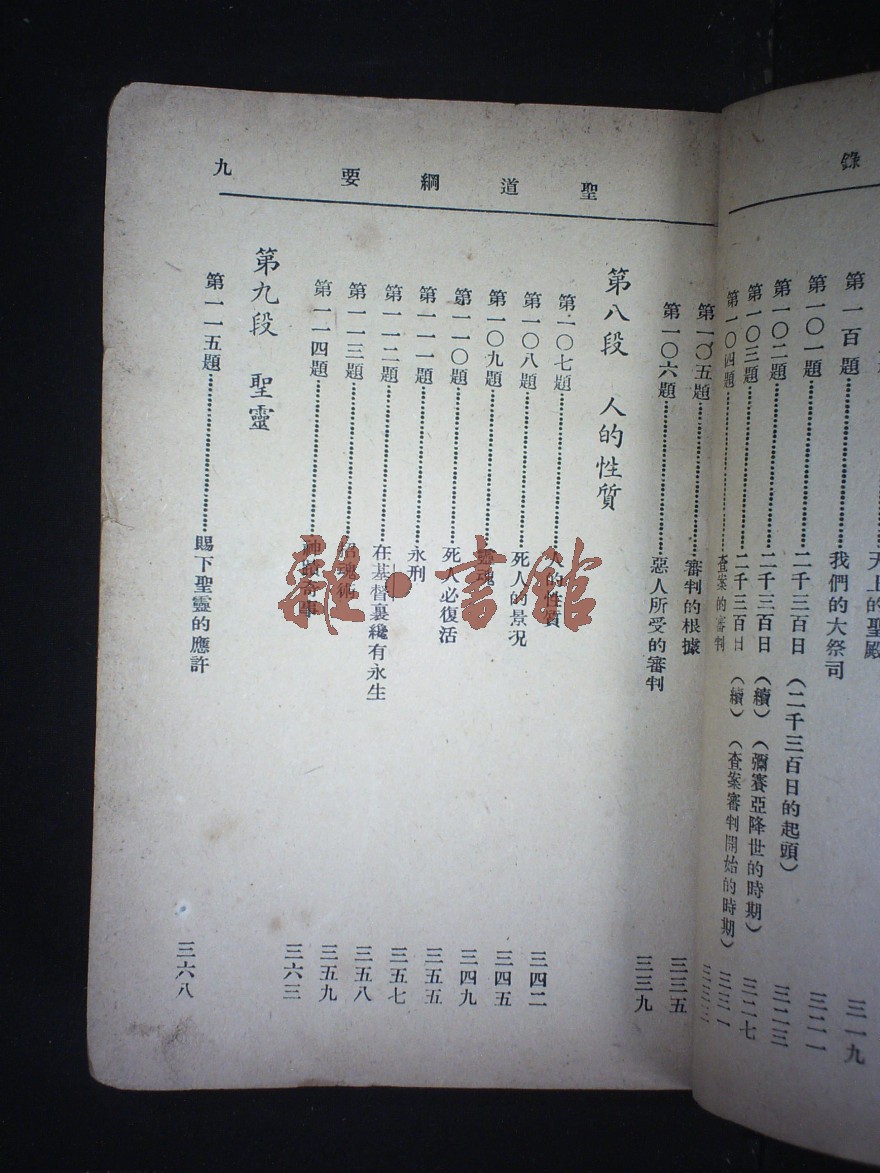 錄
天上的聖殿 三一九
第一百題 我們的大祭司 三二一
第一〇一題 二千三百日（二千三百日的起頭） 三二三
第一〇二題 二千三百日（續）（彌賽亞降世的時期） 三二七
第一〇三題 二千三百日（續）（查案審判開始的時期） 三三一
第一〇四題 查案的審判 三三三
聖道綱要 九
第一〇五題 審判的根據 三三五
第一〇六題 惡人所受的審判 三三九
第八段 人的性質
第一〇七題 人的性質 三四二
第一〇八題 死人的景况 三四五
第一〇九題 靈魂 三四九
第一一〇題 死人必復活 三五五
第一一一題 永刑 三五七
第一一二題 在基督裏纔有永生 三五八
第一一三題 招魂術 三五九
第一一四題 神蹟奇事 三六三
第九段 聖靈
第一一五題 賜下聖靈的應許 三六八
雜·書館